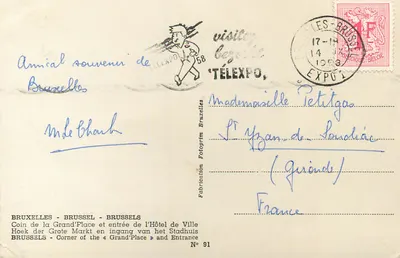 Amical souvenir de
Bruxelles
visitez
bezoekt
TÉLEXPO
58
BRUXELLES-BRUSSEL
17-18
14
1958
EXPO
Mademoiselle Petitgas
St Yzan de Soudiac
(Gironde)
France
Fabrication Fotoprim Bruxelles
BRUXELLES - BRUSSEL - BRUSSELS
Coin de la Grand'Place et entrée de l'Hôtel de Ville
Hoek der Grote Markt en ingang van het Stadhuis
BRUSSELS - Corner of the « Grand'Place » and Entrance
N° 91